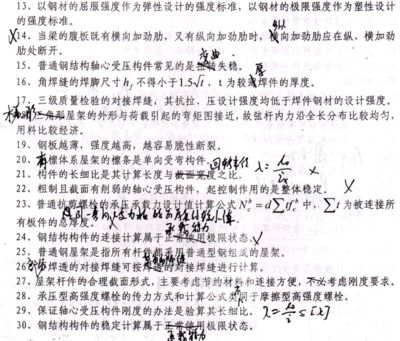 13、以钢材的屈服强度作为弹性设计的强度标准，以钢材的极限强度作为塑性设计
的强度标准。
14、当梁的腹板既有横向加劲肋，又有纵向加劲肋时，横向加劲肋应在纵、横加劲
肋处断开。
15、普通钢结构轴心受压构件常见的是扭转失稳。
16、角焊缝的焊脚尺寸 h_f 不得小于1.5√t，t 为较薄焊件的厚度。
17、三级质量检验的对接焊缝，其抗拉、压设计强度均低于焊件钢材的设计强度。
18、三角形屋架的外形与荷载引起的弯矩图接近，故弦杆内力沿全长分布比较均匀，
用料比较经济。
19、钢板越薄，强度越高，越容易脆性断裂。
20、有檩体系屋架的檩条是单向受弯构件。
21、构件的长细比是其计算长度与截面宽度之比。 回转半径 λ=l₀/i
22、粗制且截面有削弱的轴心受压构件，起控制作用的是整体稳定。 ×
23、普通抗剪螺栓的承压承载力设计值计算公式 N_c^b = d∑tf_c^b 中，∑t 为被连接所
有板件的总厚度。
24、钢结构构件的连接计算属于正常使用极限状态。
25、普通钢屋架是指所有杆件都采用普通型钢组成的屋架。
26、透的对接焊缝可按焊透的对接焊缝进行计算。
27、屋架杆件的合理截面形式，主要考虑节约材料和连接方便，不必考虑刚度要求。
28、承压型高强度螺栓的传力方式和计算公式不同于摩擦型高强度螺栓。
29、保证轴心受压构件刚度的办法是验算其长细比。 λ=l₀/i≤[λ]
30、钢结构构件的稳定计算属于正常使用极限状态。
承载能力